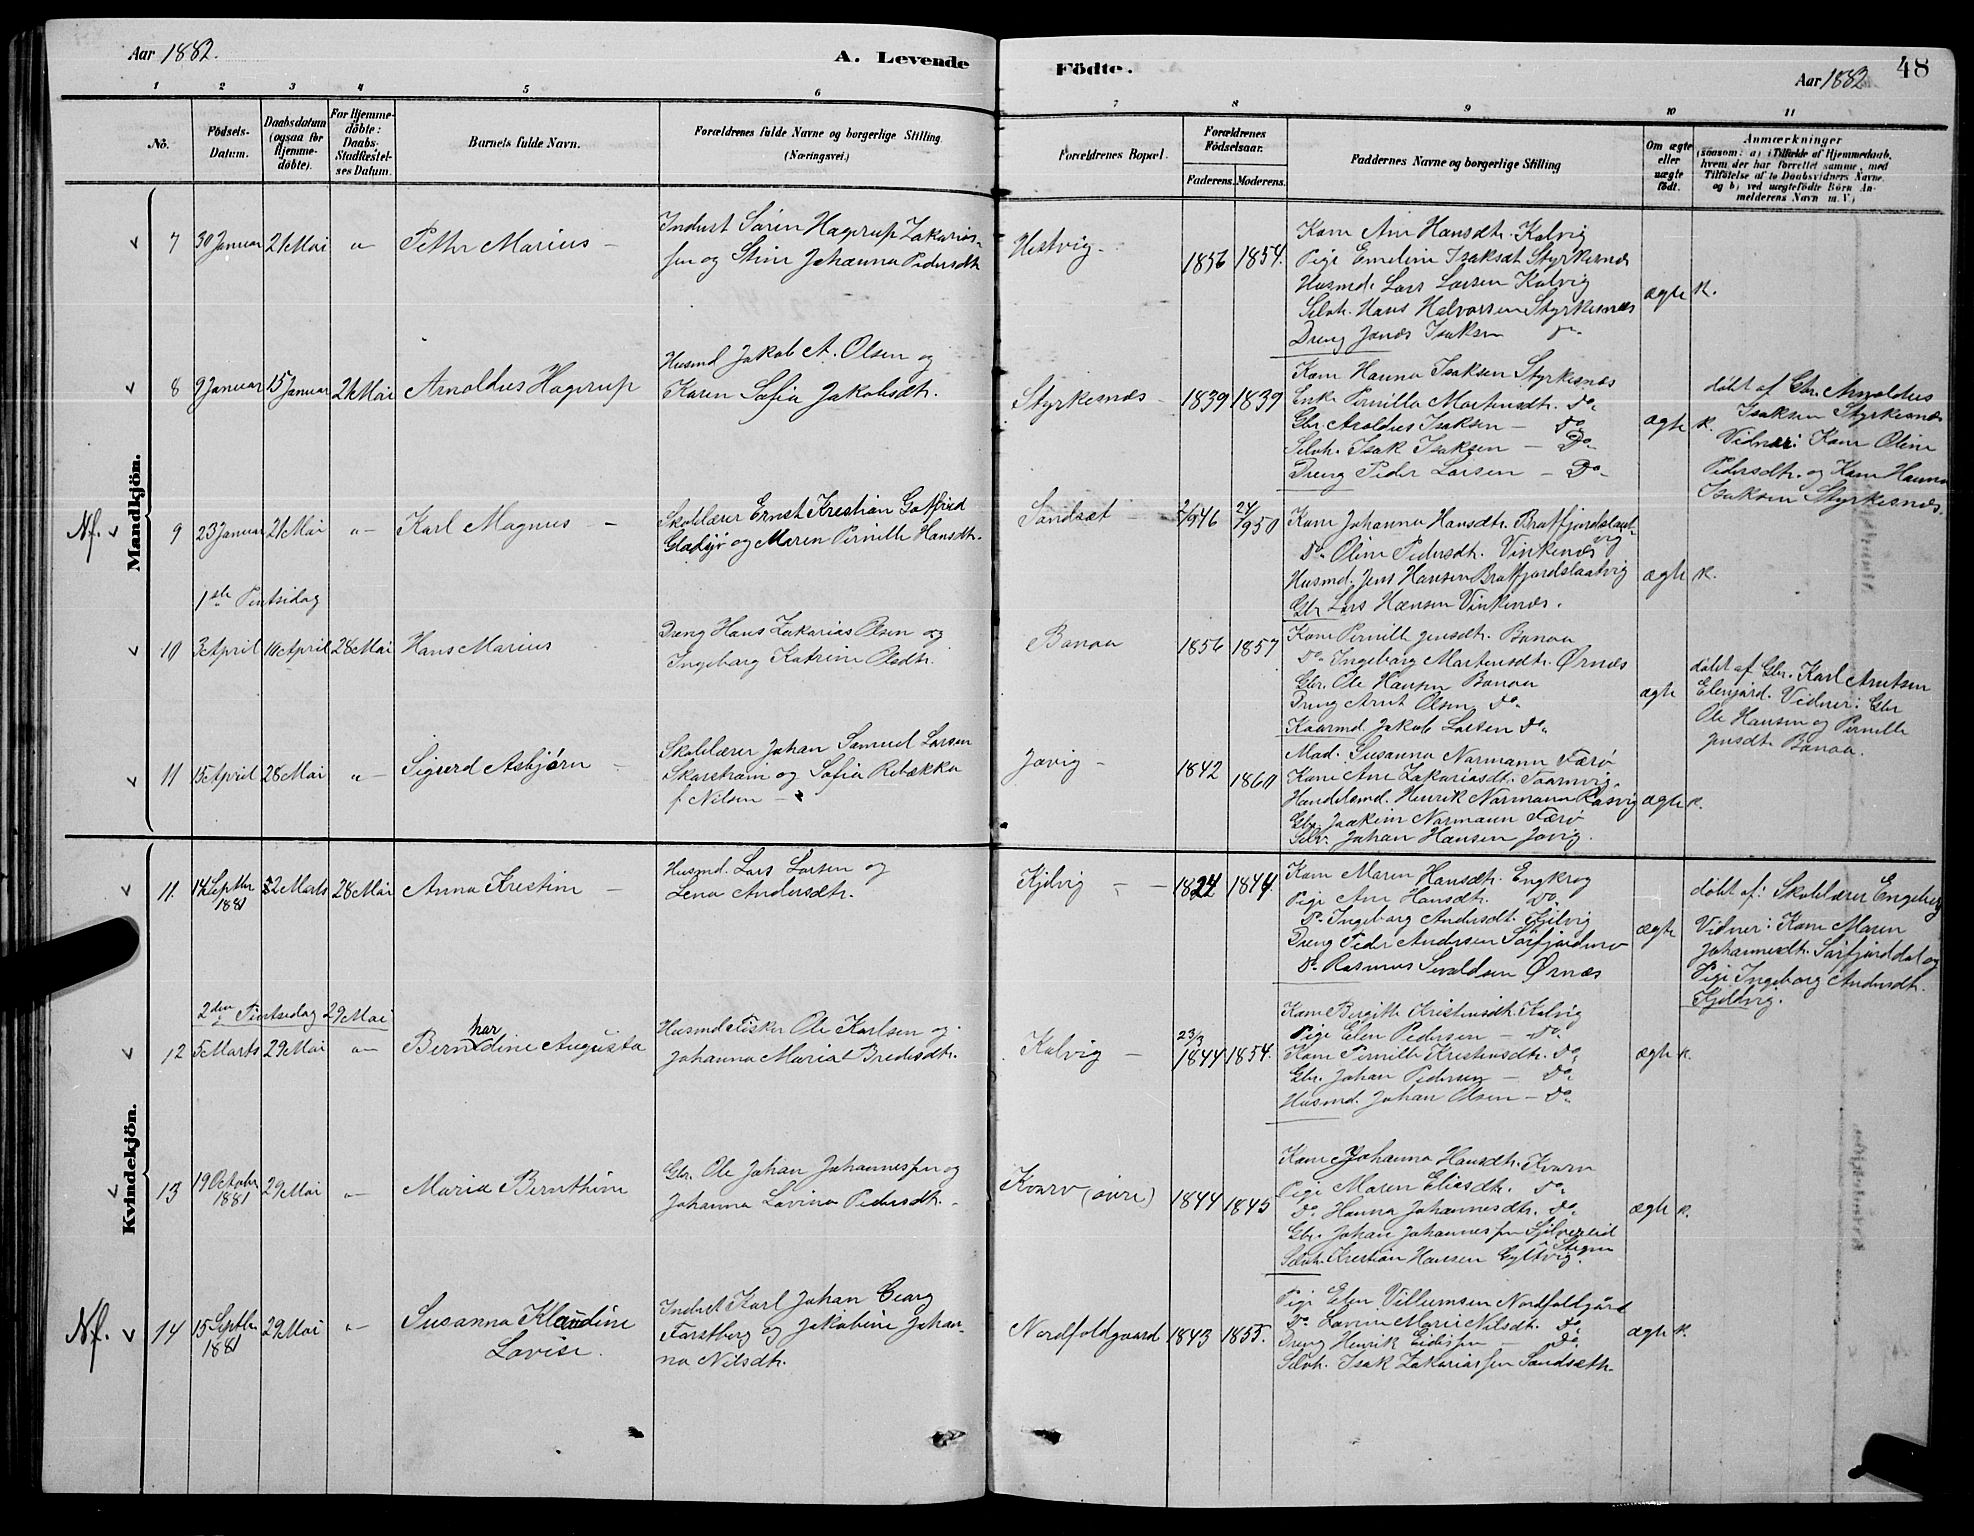 Aar 1882.
A. Levende
Födte.
Aar 1882
48
1 2 3 4 5 6 7 8 9 10 11
No.
Födsels-Datum.
Daabsdatum (ogsaa for Hjemme-döbte).
For Hjemme-döbte: Daabs-Stadfæstel-ses Datum.
Barnets fulde Navn.
Forældrenes fulde Navne og borgerlige Stilling.
(Næringsvei.)
Forældrenes Bopæl.
Forældrenes Födselsaar.
Faderens. Moderens.
Faddernes Navne og borgerlige Stilling
Om ægte eller uægte födt.
Anmærkninger
(saasom: a) i Tilfælde af Hjemmedaab,
hvem der har forrettet samme, med
Tilföielse af to Daabsvidners Navne,
og b) ved uægtefödte Börn An-
melderens Navn m. V.)
Mandkjön.
7 30 Januar 21 Mai " Pether Marius -
Indust Sören Hagerup Zakarias-
sen og Stine Johanna Pedersdt
Hestvig - 1856 1854.
Kone Ane Hansdtr. Kalvig
Pige Emeline Isaksdt Styrkesnæs
Husmd. Lars Larsen Kalvig
Selvh. Hans Halvorsen Styrkesnæs
Dreng Jonas Isaksen do
ægte k.
8 9 Januar 15 Januar 21 Mai Arnoldus Hagerup
Husmd Jakob A. Olsen og
Karen Sofia Jakobsdt.
Styrkesnæs - 1839 1839
Kone Hanna Isaksen Styrkesnæs
Enke Pernilla Mortensdt. Do
Gbr. Aroldus Isaksen - Do
Selvh. Isak Isaksen - Do
Dreng Peder Larsen - Do
ægte k.
döbt af Gbr. Arnoldus
Isaksen Styrkesnæs
Vidner: Kone Oline
Pedersdtr. og Kone Hanna
Isaksen Styrkesnæs.
Nf. 9 23 Januar 21 Mai " Karl Magnus -
Skolelærer Ernst Kristian Gotfred
Gladsjø og Maren Pernille Hansdt.
Sandsæt 2/9 46 24/9 50
Kone Johanna Hansdtr. Bratfjordslaat-
vig
Do Oline Pedersdtr. Vinkenæs
Husmd. Jens Hansen Bratfjordslaatvig
Gbr Lars Hansen Vinkenæs.
ægte k.
1ste Pintsedag
10 3 April 10 April 28 Mai Hans Marius
Dreng Hans Zakarias Olsen og
Ingeborg Katrine Olsdtr.
Bonaa 1856 1857
Kone Pernille Jensdtr. Bonaa
Do Ingeborg Martensdtr. Ørnæs
Gbr. Ole Hansen Bonaa
Dreng Arnt Olsen Do
Kaarmd. Jakob Larsen Do
ægte
döbt af Gbr. Karl Arntsen
Elvegård. Vidner: Gbr
Ole Hansen og Pernille
Jensdtr Bonaa.
11 15 April 28 Mai " Sigurd Asbjørn -
Skolelærer Johan Samuel Larsen
Skarstrøm og Sofia Rebækka
f. Nilsen -
Jøvig - 1842 1860
Mad. Susanna Normann Færø
Kone Ane Zakariasdt. Taarnvig
Handelsmd. Henrik Normann Røsvig
Gbr. Joakim Normann Færø
Selv. Johan Hansen Jøvig.
ægte k.
Kvindekjön.
11. 14 Septbr 1881 22 Marts 28 Mai Anna Kristine -
Husmd. Lars Larsen og
Lena Andersdtr.
Kjelvig - 1824 1844
Kone Maren Hansdtr. Engkrog
Pige Ane Hansdtr. Do
Do Ingeborg Andersdt. Kjelvig
Dreng Peder Andersen Sørfjordmo
Do Rasmus Sivaldsen Ørnæs
ægte
döbt af: Skolelærer Engeberg
Vidner: Kone Maren
Johannesdt. Sørfjorddal og
Pige Ingeborg Andersdt.
Kjeldvig.
2den Pintsedag 29 Mai
12 5 Marts 29 Mai " Bernhardine Augusta
Husmd Fisker Ole Karlsen og
Johanna Maria Bredesdtr.
Kalvig - 23/3 1844 1854.
Kone Bergitte Kristensdt. Kalvig
Pige Elen Pedersen - Do
Kone Pernille Kristensdtr. Do
Gbr. Johan Pedersen - Do
Husmd. Johan Olsen - Do
ægte k.
13 19 October 1881 29 Mai " Maria Bernthine
Gbr. Ole Johan Johannessen og
Johanna Lovina Pedersdtr. -
Kvarv (øvre) 1844 1845
Kone Johanna Hansdtr. Kvarv
Pige Maren Eliasdtr. Do
Do Hanna Johannesdtr. Do
Gbr. Johan Johannessen Sjelvereid
Stegen
Selvh. Kristian Hansen Gyltvig.
ægte k.
Nf. 14 15 Septbr. 1881 29 Mai " Susanna Klaudine
Lovise.
Indust Karl Johan Georg
Forstberg og Jakobine Johan-
na Nilsdtr.
Nordfoldgaard 1843 1855.
Pige Elen Villumsen Nordfoldgård
Do Lovise Marie Nilsdt. Do
Dreng Henrik Eidissen - Do
Selvh. Isak Zakariassen Sandsæth.
ægte k.